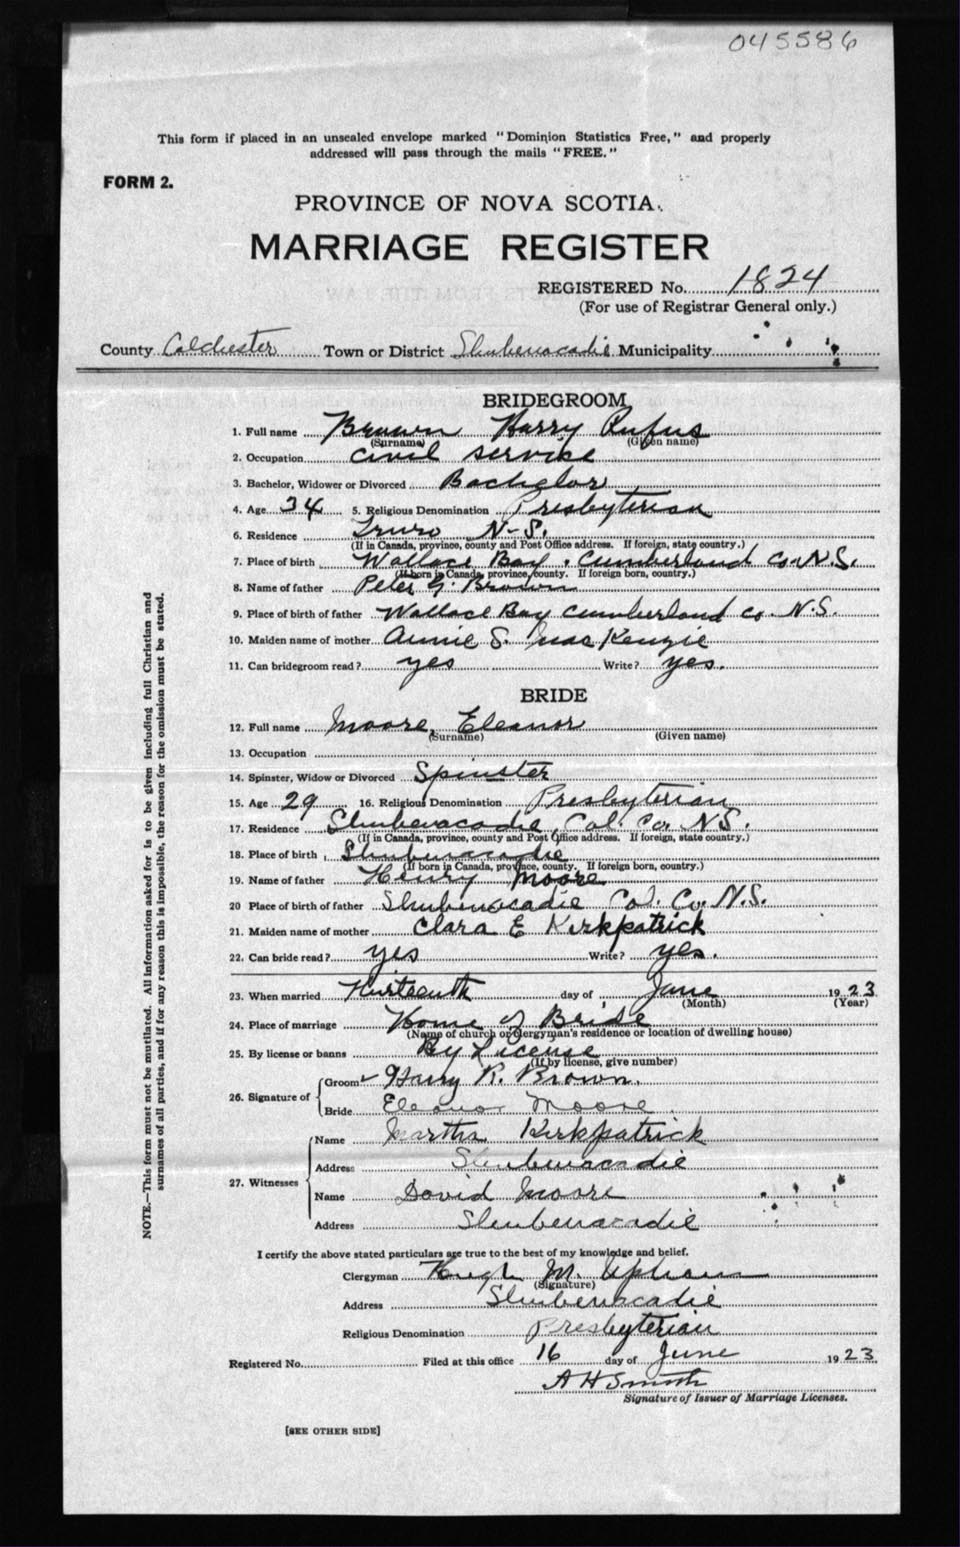 045586
This form if placed in an unsealed envelope marked "Dominion Statistics Free," and properly
addressed will pass through the mails "FREE."
FORM 2.
PROVINCE OF NOVA SCOTIA.
MARRIAGE REGISTER
REGISTERED No. 1824
(For use of Registrar General only.)
County Colchester Town or District Shubenacadie Municipality
BRIDEGROOM
1. Full name Brown Harry Rufus
(Surname) (Given name)
2. Occupation civil service
3. Bachelor, Widower or Divorced Bachelor
4. Age 34 5. Religious Denomination Presbyterian
6. Residence Truro N-S.
(If in Canada, province, county and Post Office address. If foreign, state country.)
7. Place of birth Wallace Bay, Cumberland Co. N.S.
(If born in Canada, province, county. If foreign born, country.)
8. Name of father Peter G. Brown
9. Place of birth of father Wallace Bay Cumberland co N.S.
10. Maiden name of mother Annie S. MacKenzie
11. Can bridegroom read? yes Write? yes.
BRIDE
12. Full name Moore, Eleanor
(Surname) (Given name)
13. Occupation
14. Spinster, Widow or Divorced Spinster
15. Age 29 16. Religious Denomination Presbyterian
17. Residence Shubenacadie, Col. Co. N.S.
(If in Canada, province, county and Post Office address. If foreign, state country.)
18. Place of birth Shubenacadie
(If born in Canada, province, county. If foreign born, country.)
19. Name of father Henry Moore
20 Place of birth of father Shubenacadie Col. Co. N.S.
21. Maiden name of mother Clara E Kirkpatrick
22. Can bride read? yes Write? yes.
23. When married Thirteenth day of June 1923
(Month) (Year)
24. Place of marriage Home of Bride
(Name of church or clergyman's residence or location of dwelling house)
25. By license or banns By License
(If by license, give number)
26. Signature of Groom Harry R. Brown.
Bride Eleanor Moore.
27. Witnesses Name Martha Kirkpatrick
Address Shubenacadie
Name David Moore
Address Shubenacadie
I certify the above stated particulars are true to the best of my knowledge and belief.
Clergyman Hugh M. Upham
(Signature)
Address Shubenacadie
Religious Denomination Presbyterian
Registered No. Filed at this office 16 day of June 1923
A H Smith
Signature of Issuer of Marriage Licenses.
[SEE OTHER SIDE]
NOTE.—This form must not be mutilated. All information asked for is to be given including full Christian and
surnames of all parties, and if for any reason this is impossible, the reason for the omission must be stated.